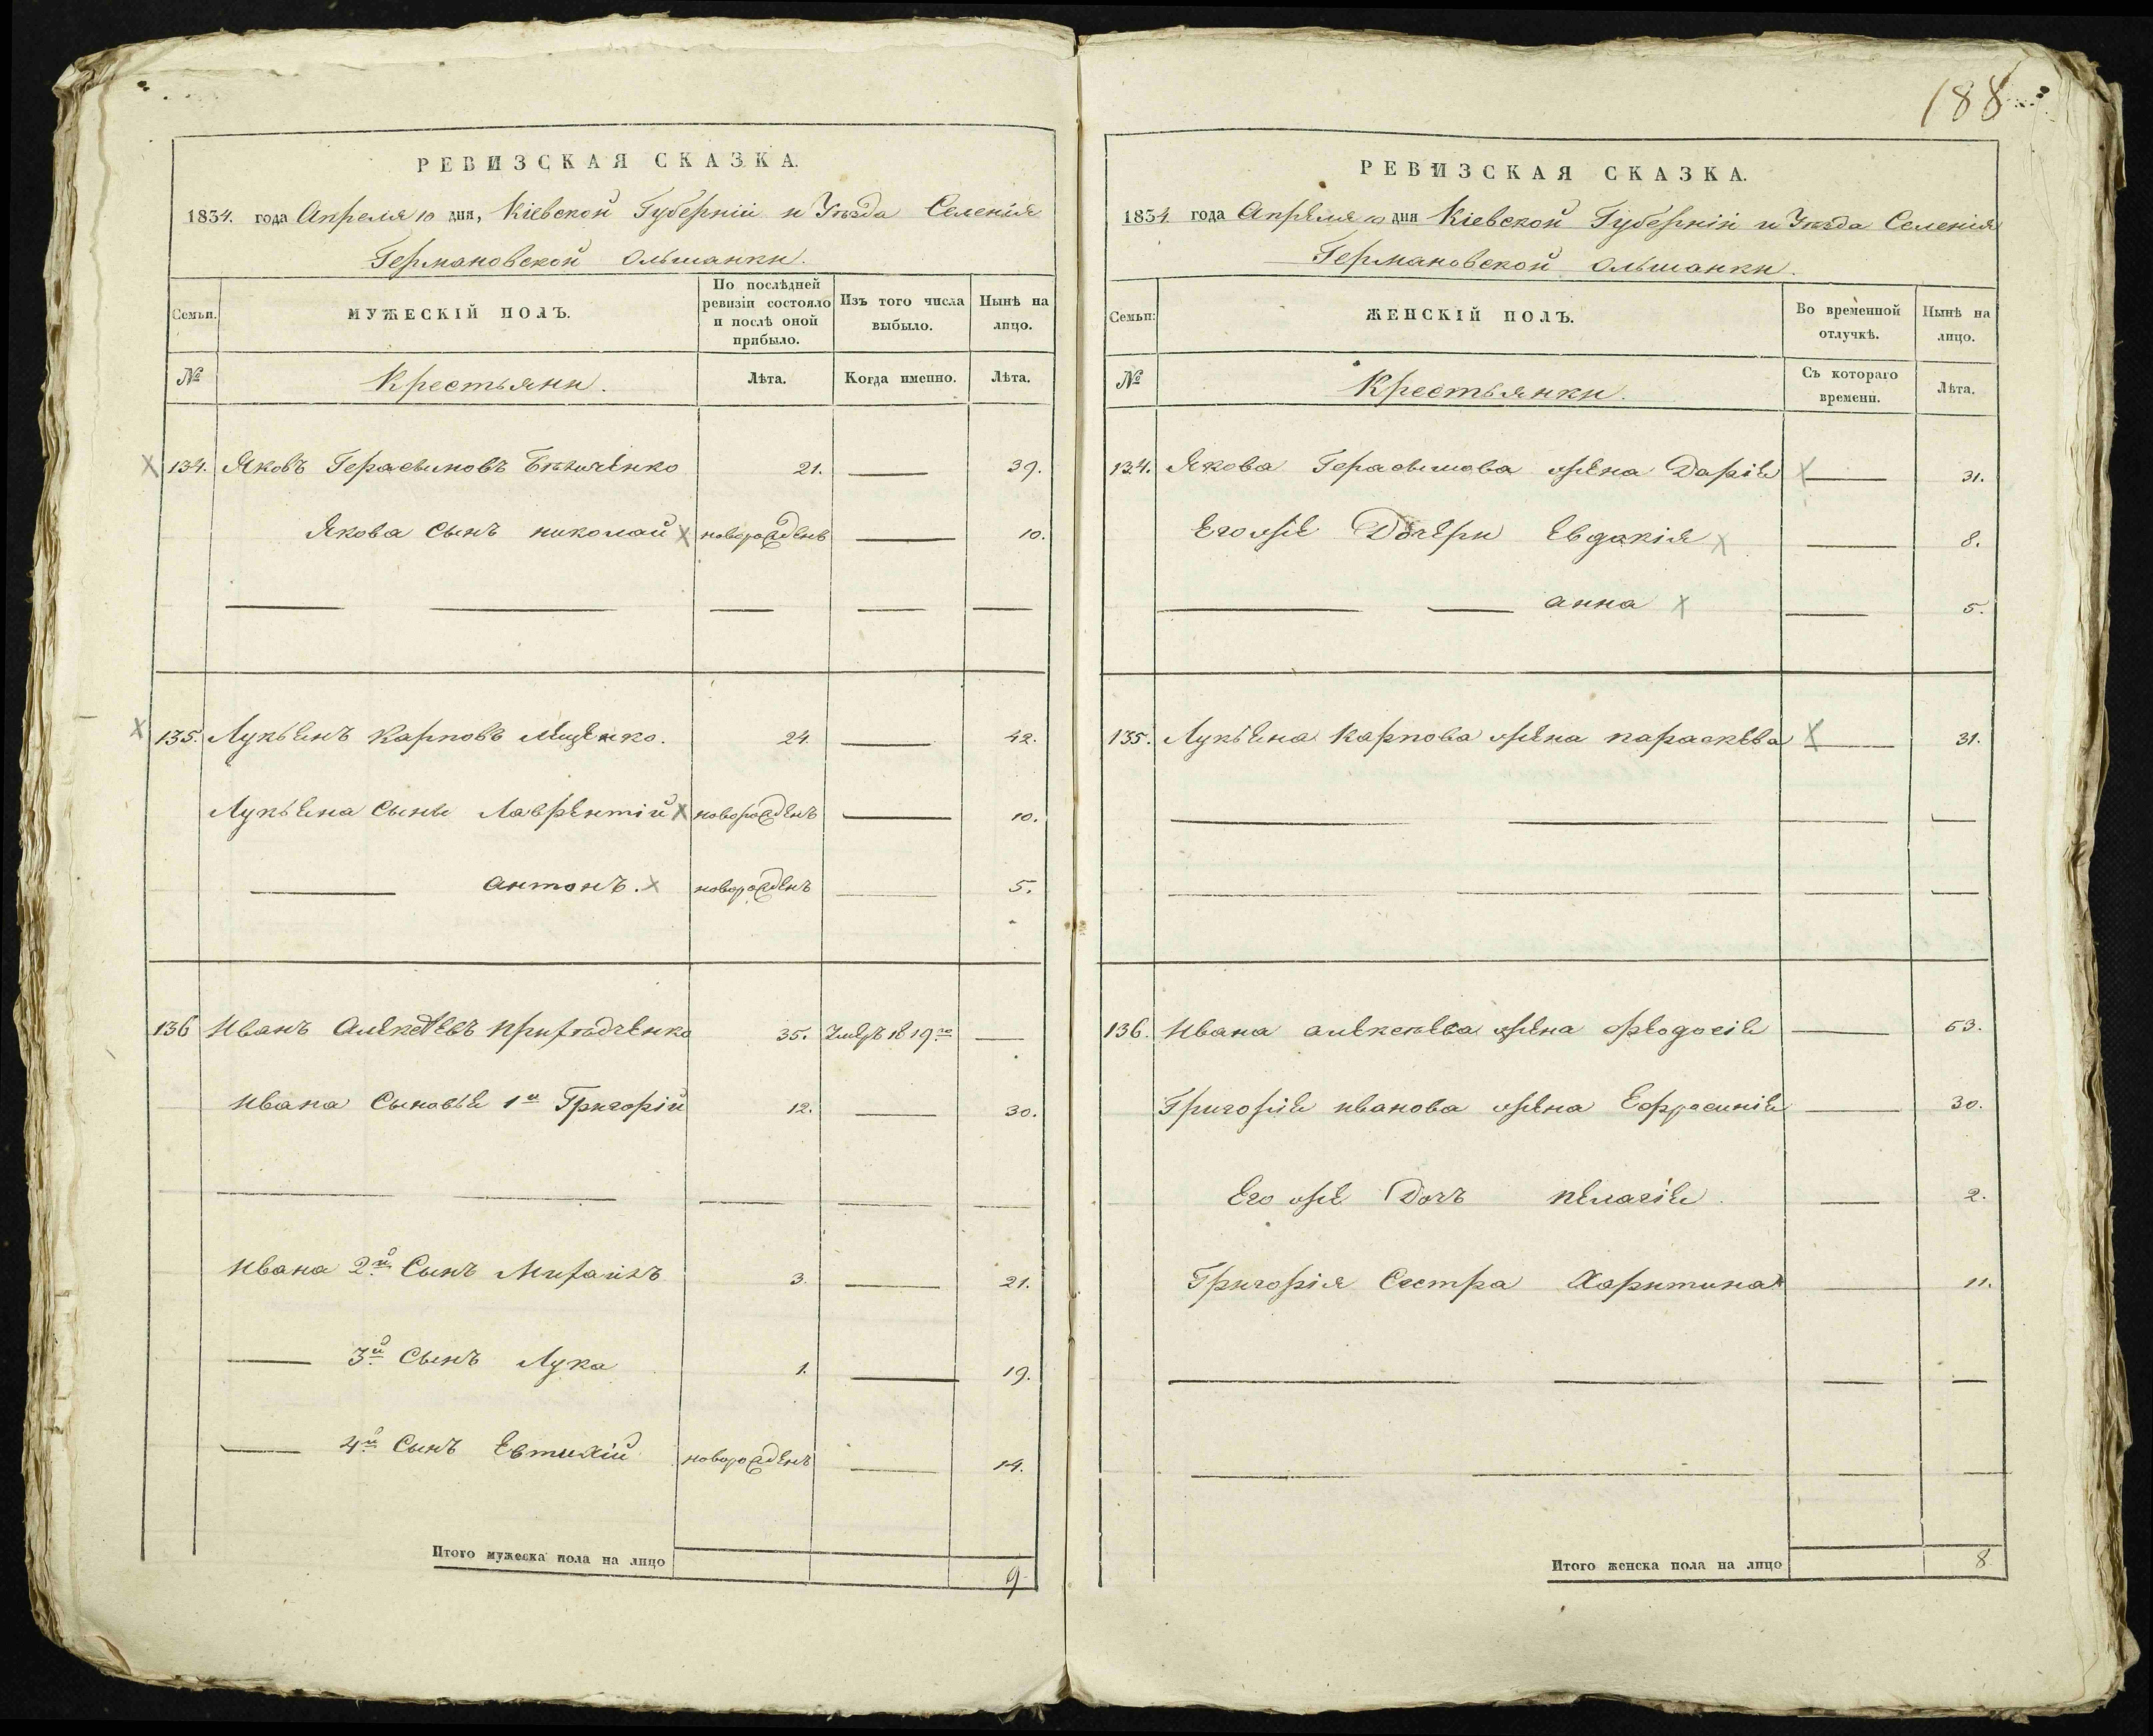 188
РЕВИЗСКАЯ СКАЗКА.
1834. года Апреля 10 дня, Кіевской Губерніи и Уезда Селенія
Германовской Ольшанки.
Семьи.
МУЖЕСКІЙ ПОЛЪ.
По послѣдней ревизіи состояло и послѣ оной прибыло.
Изъ того числа выбыло.
Нынѣ на лицо.
№
Крестьяни.
Лѣта.
Когда именно.
Лѣта.
134. Яковъ Герасимовъ 21. 39.
Якова Сынъ николай новорожденъ 10.
135. Лукьянъ Карповъ Мищенко. 24. 42.
Лукьяна Сыны Лаврентій новорожденъ 10.
антонъ. новорожденъ 5.
136 Иванъ Алексѣевъ 35. Умеръ 1819го
Ивана Сыновья 1й Григорій 12. 30.
Ивана 2й Сынъ Михайлъ 3. 21.
3й Сынъ Лука 1. 19.
4й Сынъ Евтихій новорожденъ 14.
Итого мужеска пола на лицо 9
РЕВИЗСКАЯ СКАЗКА.
1834. года Апреля 10 дня Кіевской Губерніи и Уезда Селенія
Германовской Ольшанки.
Семьи:
ЖЕНСКІЙ ПОЛЪ.
Во временной отлучкѣ.
Нынѣ на лицо.
№
Крестьянки.
Съ котораго времени.
Лѣта.
134. Якова Герасимова жена Дарія 31.
Егожѣ Дочери Евдокія 8.
анна 5.
135. Лукьяна Карпова жена параскева 31.
136. Ивана алексѣева жена феодосія 53.
Григорія иванова жена Ефросинія 30.
Его же Дочъ пелагія. 2.
Григорія Сестра Харитина 11.
Итого женска пола на лицо 8